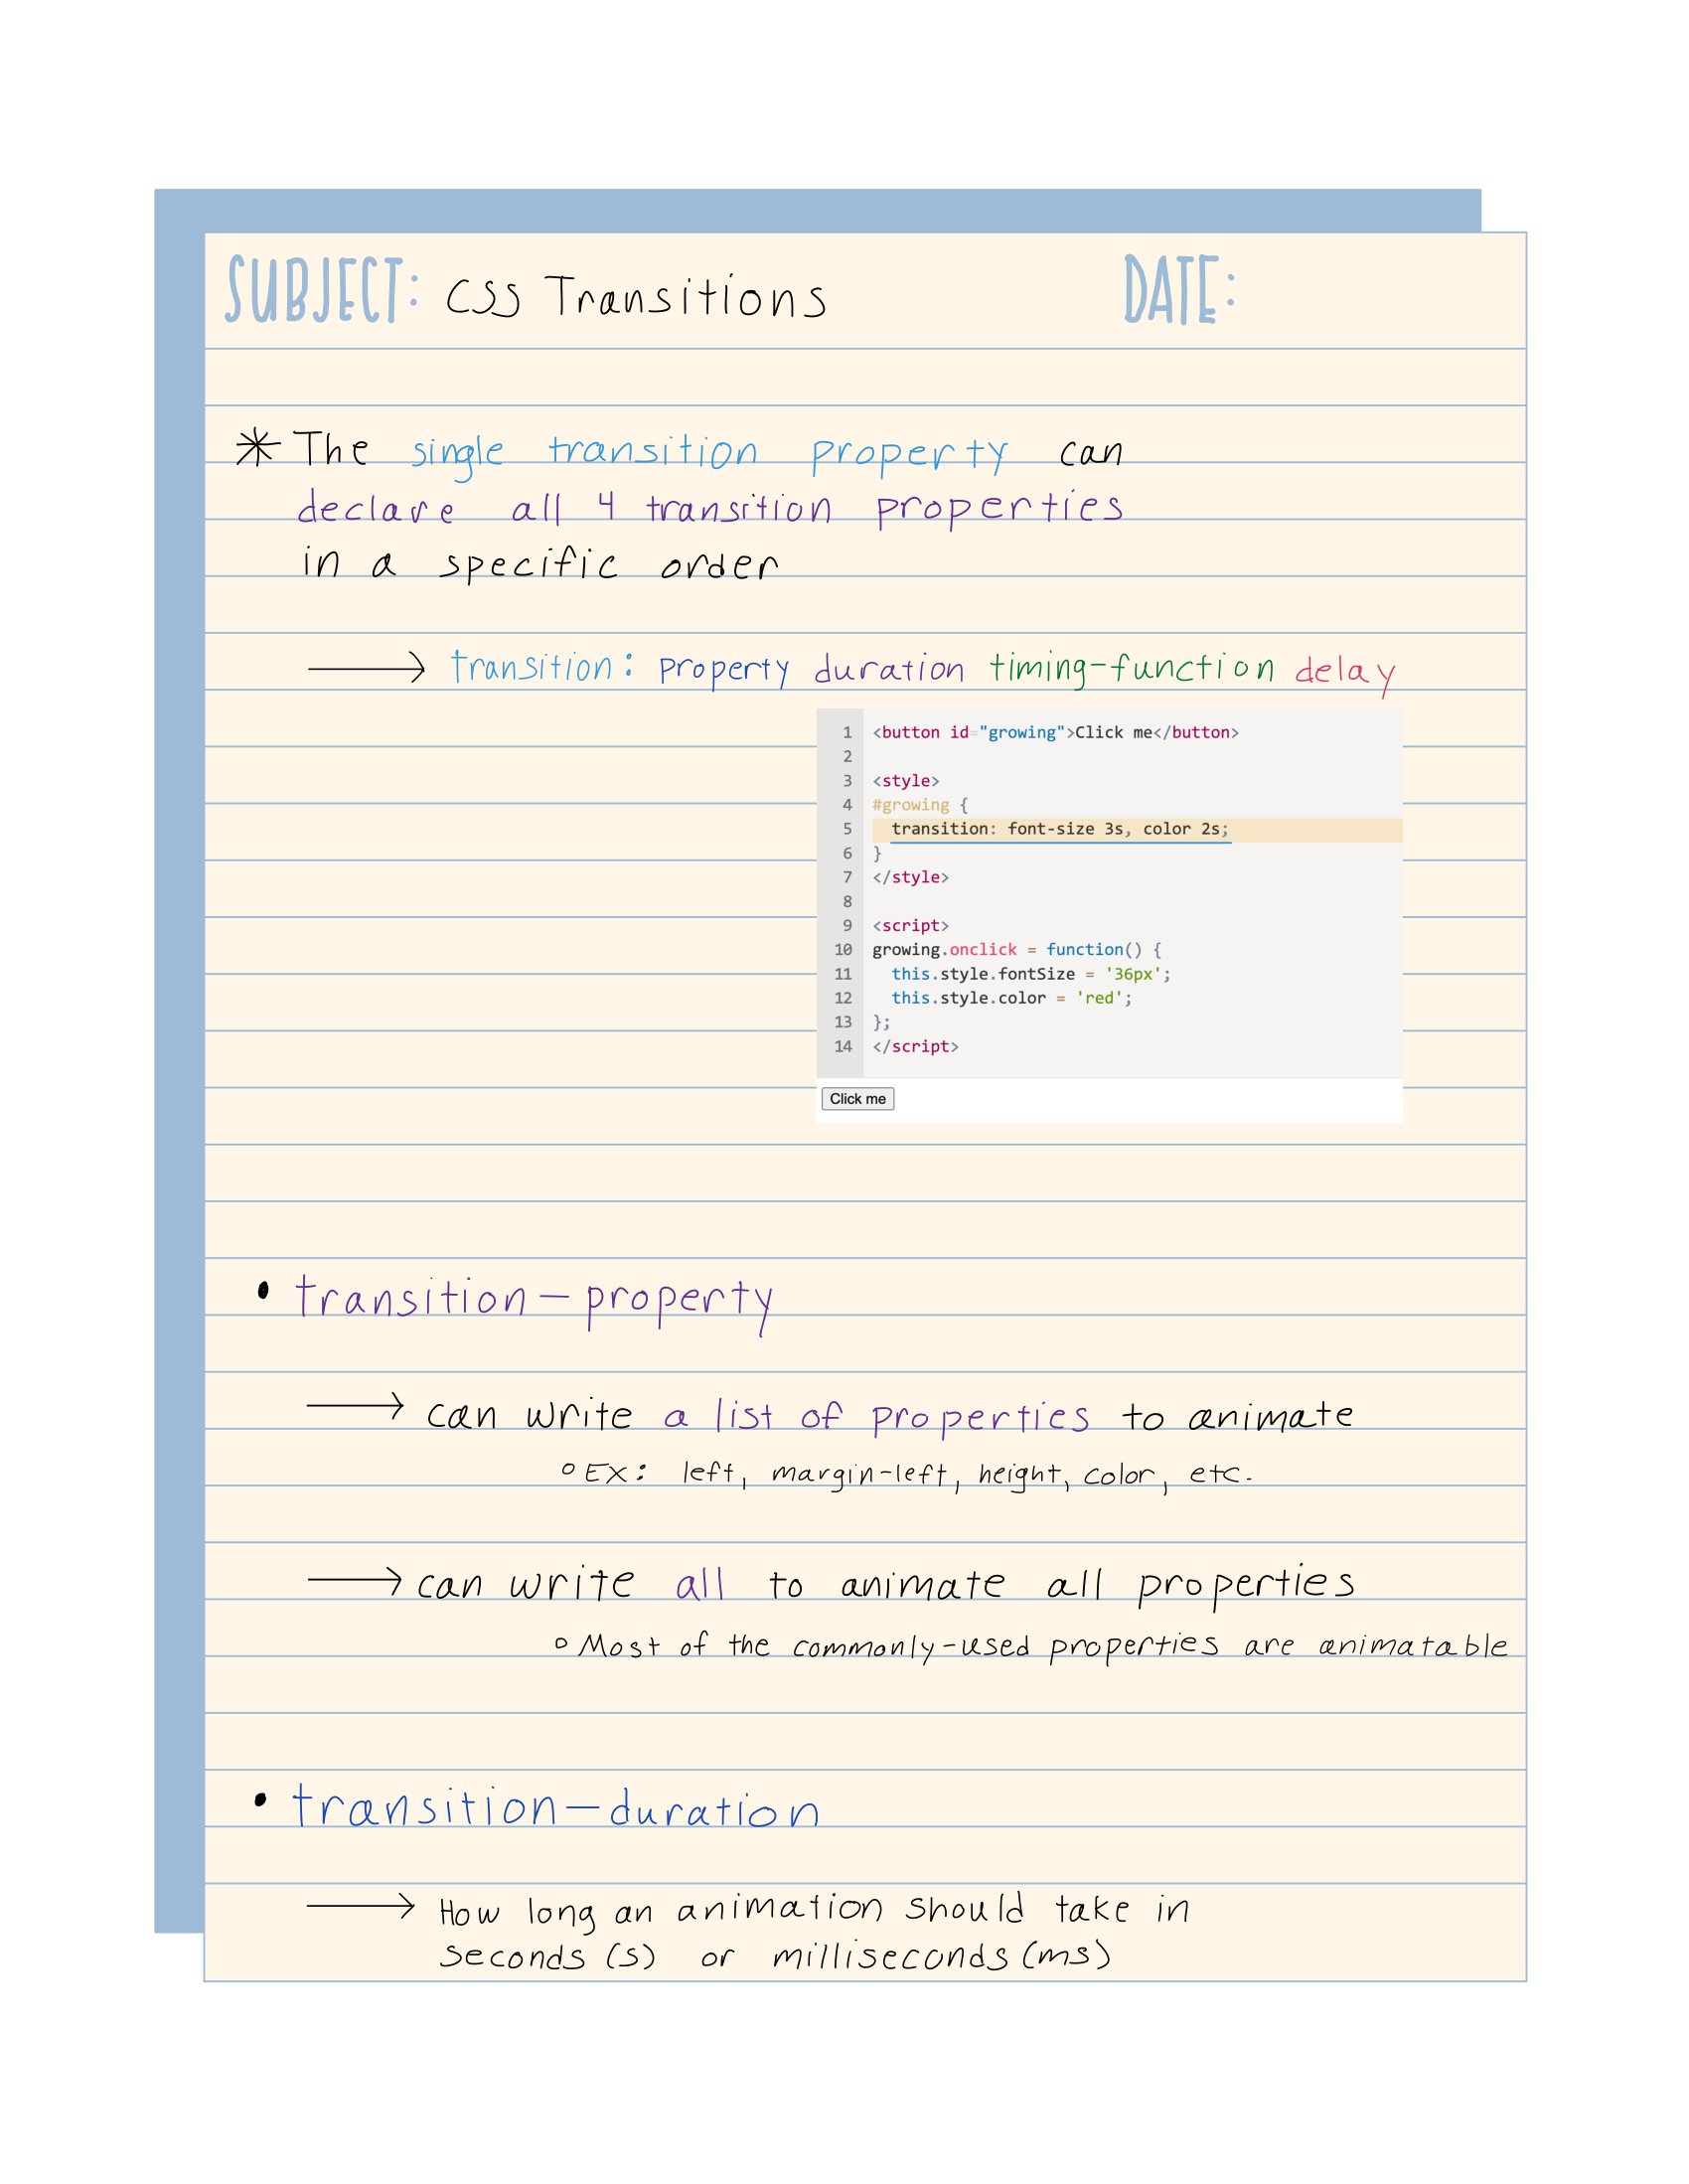 SUBJECT: CSS Transitions DATE:
* The single transition property can
declare all 4 transition properties
in a specific order
→ transition: property duration timing-function delay
1 <button id="growing">Click me</button>
2
3 <style>
4 #growing {
5   transition: font-size 3s, color 2s;
6 }
7 </style>
8
9 <script>
10 growing.onclick = function() {
11   this.style.fontSize = '36px';
12   this.style.color = 'red';
13 };
14 </script>
Click me
• transition-property
→ can write a list of properties to animate
◦ EX: left, margin-left, height, color, etc.
→ can write all to animate all properties
◦ Most of the commonly-used properties are animatable
• transition-duration
→ How long an animation should take in
seconds (s) or milliseconds (ms)